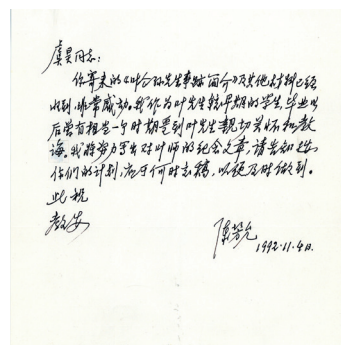 虞昊同志：
你寄来的《叶企孙先生事略简介》及其他材料已经
收到，非常感动。我作为叶先生较早期的学生，毕业以
后曾有相当一个时期受到叶先生亲切关怀和教
诲。我将努力写出对叶师的纪念文章。请告知
你们的计划，应于何时交稿，以便及时做到。
此祝
教安
陈芳允
1992.11.4日.